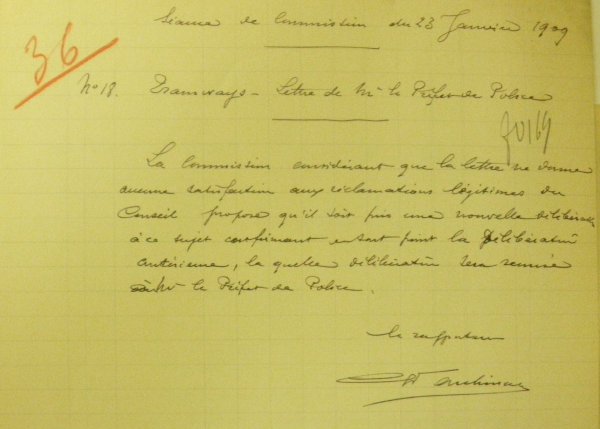 36
Séance de Commission du 23 Janvier 1909
No 18. Tramways - Lettre de Mr le Préfet de Police
La Commission considérant que la lettre ne donne
aucune satisfaction aux réclamations légitimes du
Conseil propose qu'il soit pris une nouvelle délibération
à ce sujet confirmant en tout point la Délibération
antérieure, la quelle délibération sera remise
à Mr le Préfet de Police.
Le rapporteur